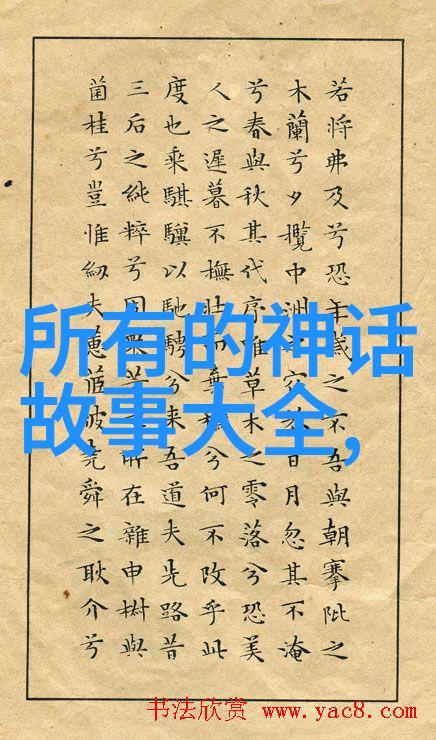 若將弗及兮恐年歲之不吾與朝搴阰之
木蘭兮夕攬中洲之宿莽日月忽其不淹
兮春與秋其代序唯草木之零落兮恐美
人之遲暮不撫壯而棄穢兮何不改乎此
度也乘騏驥以馳騁兮来吾道夫先路昔
三后之純粹兮固眾芳之所在雜申椒與
菌桂兮豈惟紉夫蕙茝彼堯舜之耿介兮
所有的神话
故事大全,
书法欣赏 www.yac8.com